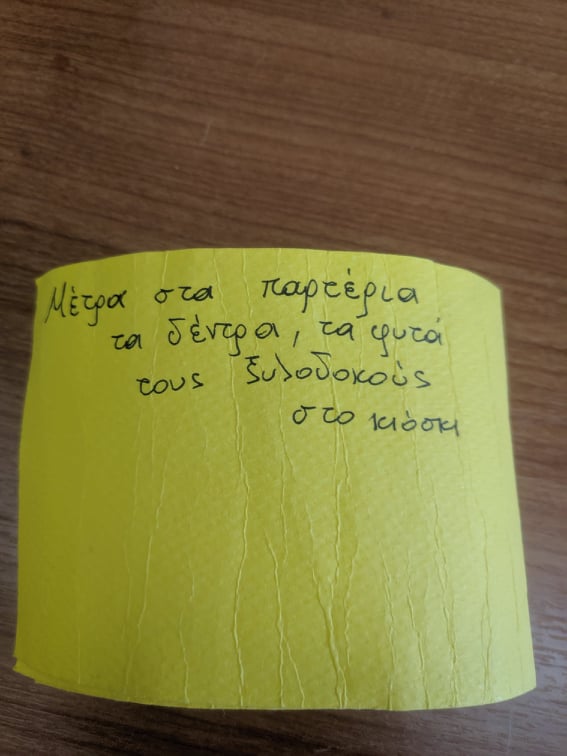 Μέτρα στα παρτέρια
τα δέντρα, τα φυτά
τους ξυλοδοκούς
στο κιόσκι